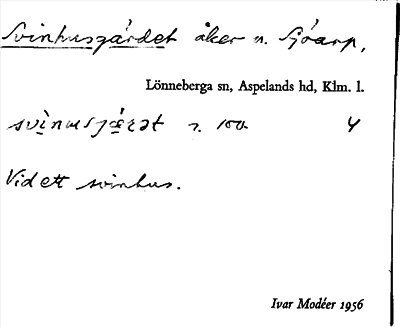 Svinhusgärdet åker n. Sjöarp,
Lönneberga sn, Aspelands hd, Klm. l.
4
Vid ett svinhus.
Ivar Modéer 1956